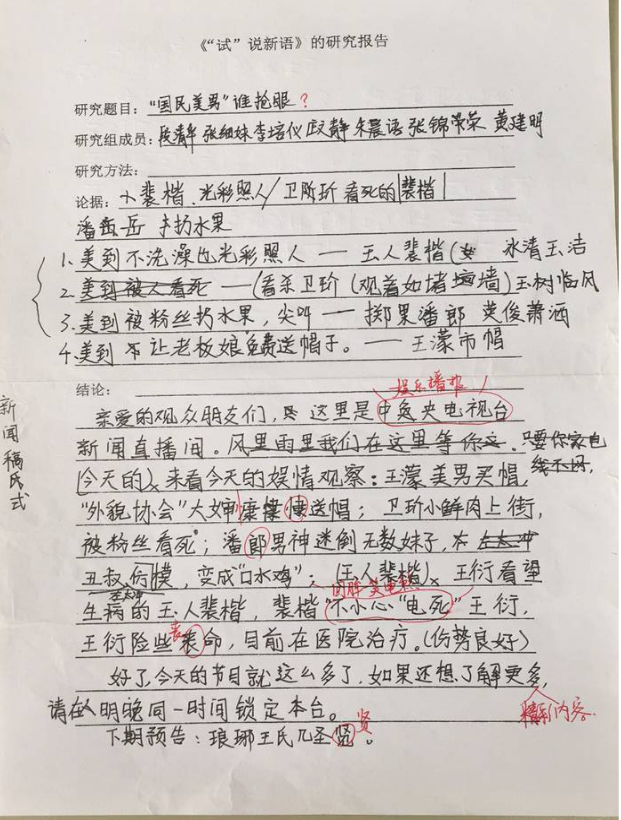 《“试”说新语》的研究报告
研究题目：“国民美男”谁抢眼？
研究组成员：段静 张细妹 李培仪 静 朱晨语 张锦荣荣 黄建明
研究方法：
论据：裴楷.光彩照人/卫玠 看死的裴楷
潘岳 手扔水果
1.美到不洗澡也光彩照人 — 玉人裴楷( 冰清玉洁
2.美到被人看死 —(看杀卫玠(观着如堵墙)玉树临风
3.美到被粉丝扔水果，尖叫 — 掷果潘郎 英俊萧洒
4.美到 让老板娘免费送帽子。— 王濛市帽
结论：
娱乐播报
亲爱的观众朋友们，这里是中央电视台
新闻直播间。风里雨里我们在这里等你 只要你家电
线不坏，
今天的 来看今天的娱情观察：王濛美男买帽，
“外貌协会”大婶慷慷送帽；卫玠小鲜肉上街，
被粉丝看死；潘郎男神迷倒无数妹子，左太冲
丑叔仿模，变成“口水鸡”；(玉人裴楷)王衍看望
左太冲
生病的玉人裴楷，裴楷“不小心“电死”王衍，
王衍险些丧命，目前在医院治疗。(伤势良好)
丧
好了今天的节目就这么多了，如果还想了解更多，
精彩内容.
请在明晚同一时间锁定本台。
下期预告：琅琊王氏几圣贤。
贤
新闻稿民式